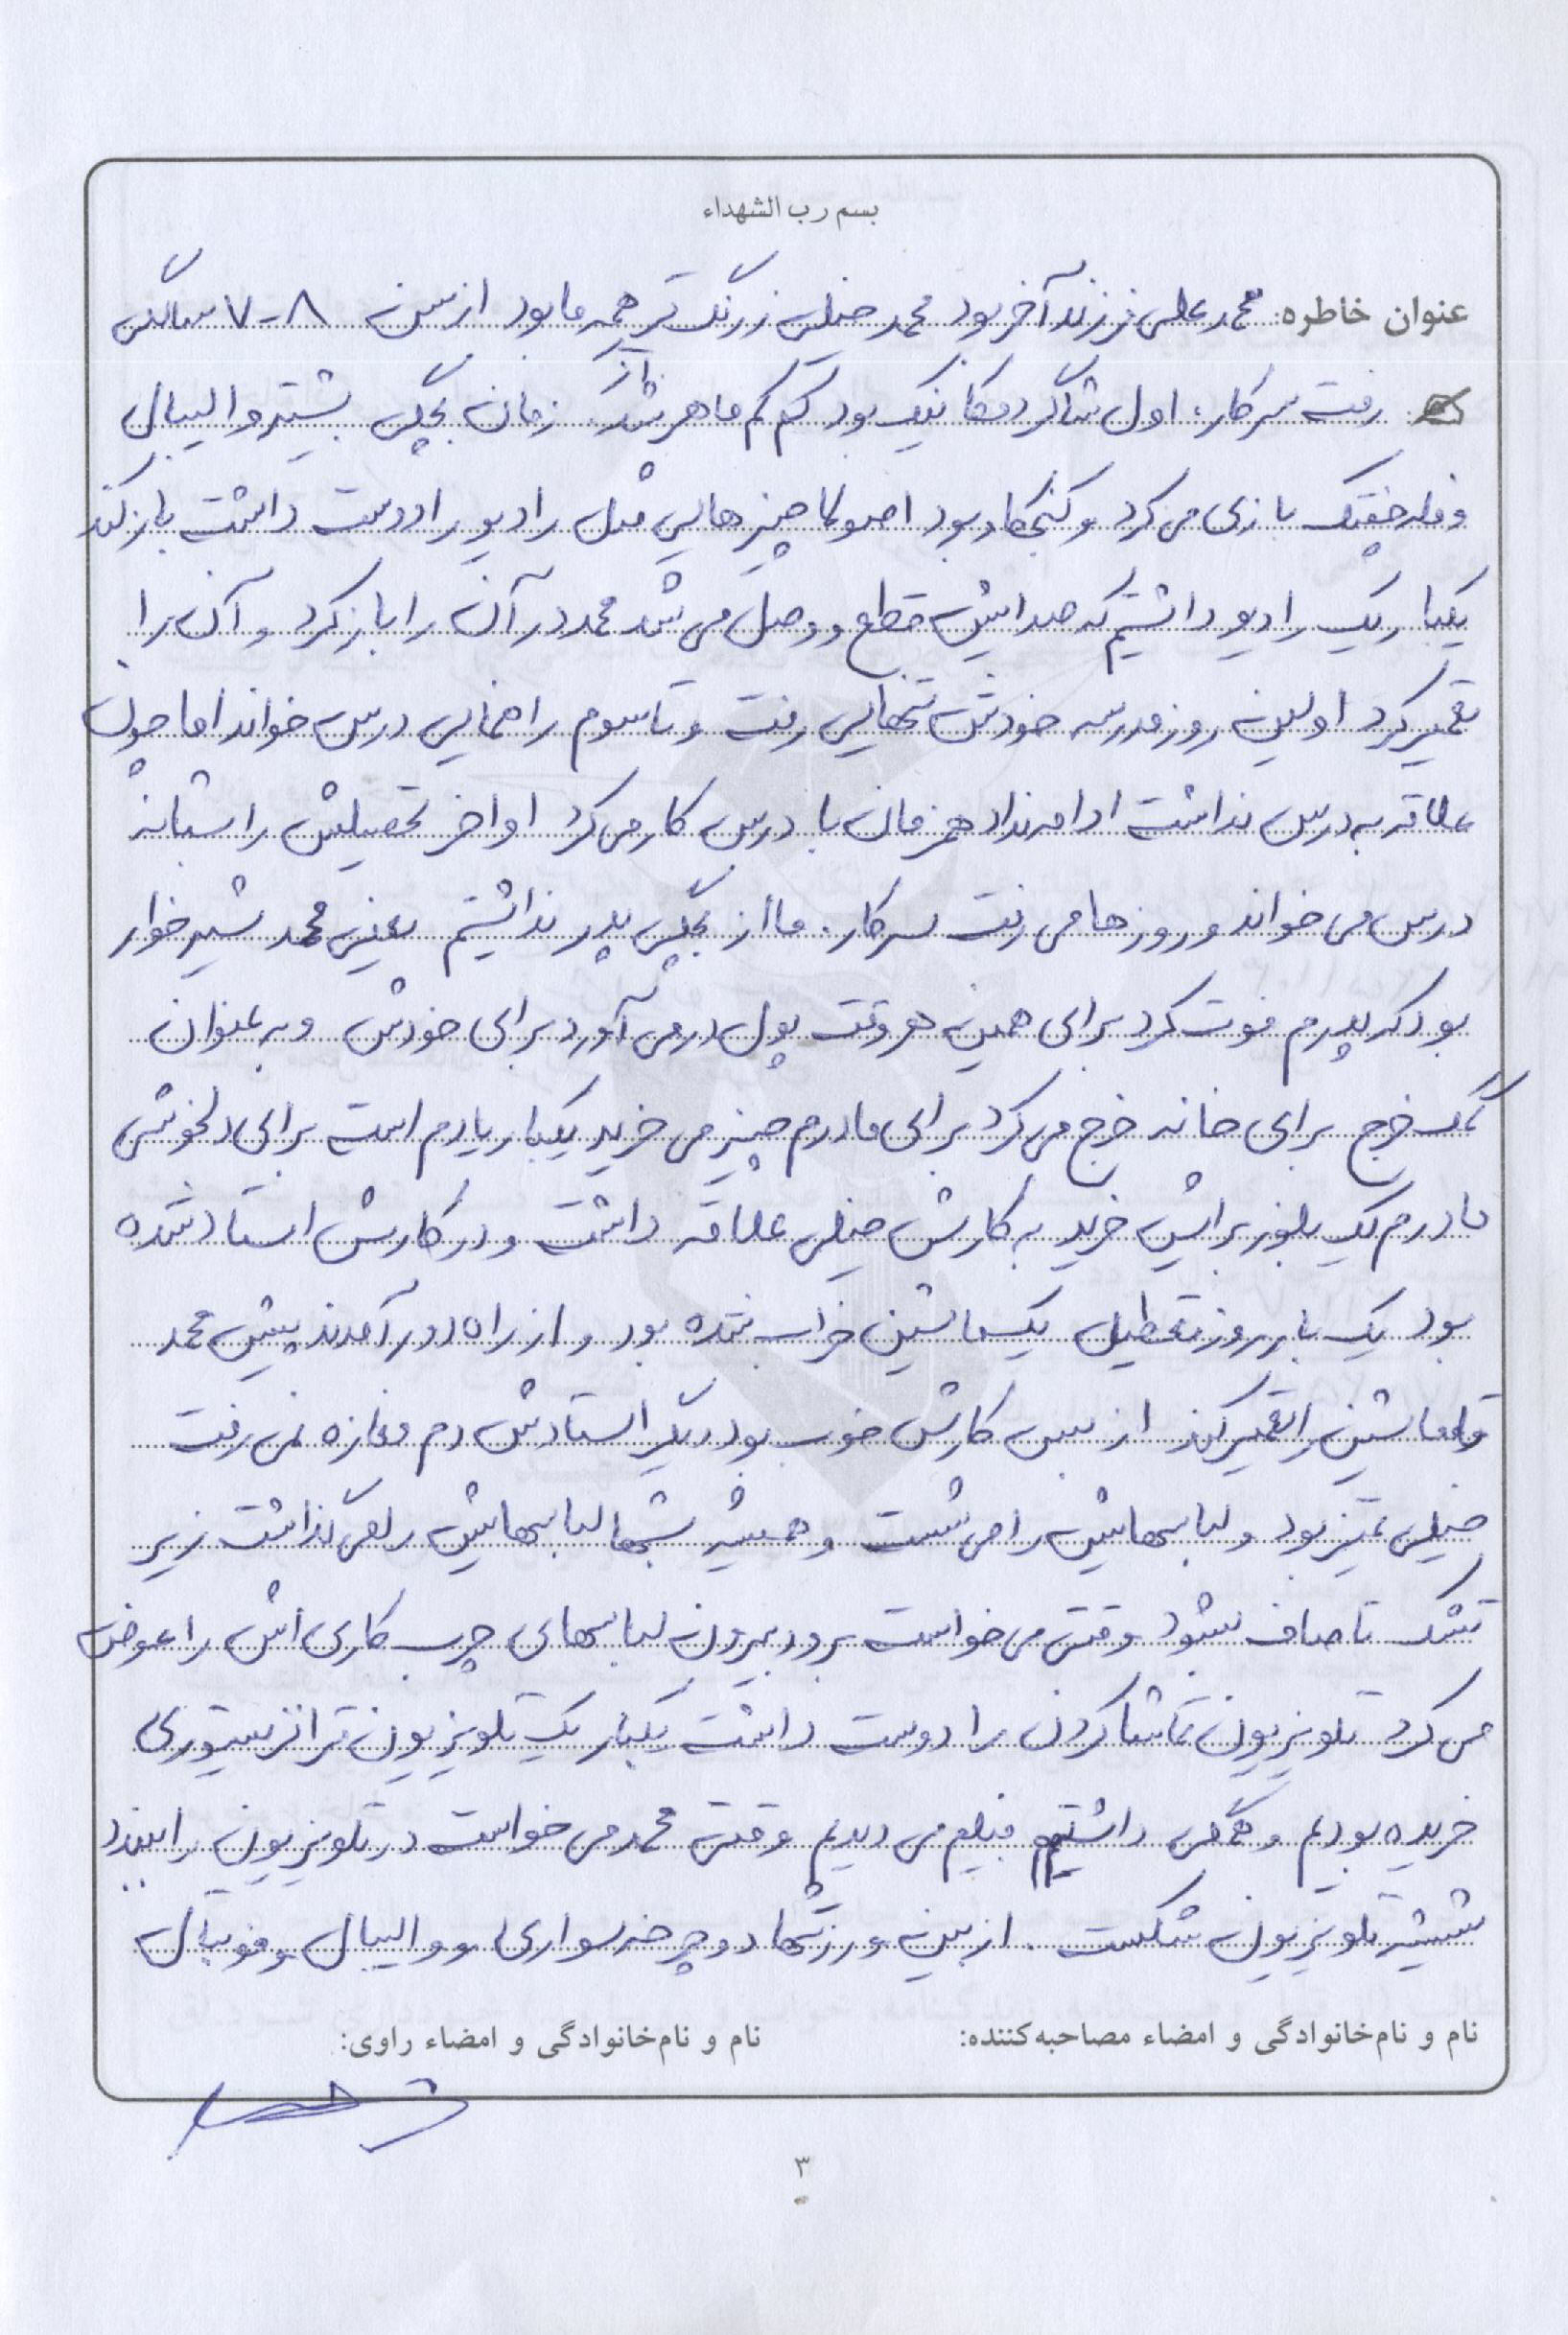 بسم رب الشهداء
عنوان خاطره: محمد علی فرزند آخر بود محمد خیلی زرنگ تر از همه ما بود از سن ۸-۷ سالگی
رفت سر کار، اول شاگرد مکانیک بود کم کم ماهر شد. زمان بچگی بیشتر والیبال
و بازی می کرد و کنجکاو بود اصولا چیزهایی مثل رادیو را دوست داشت باز کند
یکبار یک رادیو داشتیم که صدایش قطع و وصل می شد محمد در آن را باز کرد و آن را
تعمیر کرد اولین روز مدرسه خودش تنهایی رفت و تا سوم راهنمایی درس خواند اما چون
علاقه به درس نداشت ادامه نداد همزمان با درس کار می کرد اواخر تحصیلش را شبانه
درس می خواند و روزها می رفت سر کار. ما از بچگی پدر نداشتیم یعنی محمد شیرخوار
بود که پدرم فوت کرد برای همین هر وقت پول در می آورد برای خودش و به عنوان
کمک خرج برای خانه خرج می کرد برای مادرم چیز می خرید یکبار یادم است برای دلخوشی
مادرم یک بلوز برایش خرید به کارش خیلی علاقه داشت و در کارش استاد شده
بود یک بار روز تعطیل یک ماشین خراب شده بود و از راه دور آمدند پیش محمد
تا ماشین را تعمیر کند از بس کارش خوب بود دیگر استادش دم مغازه نمی رفت
خیلی تمیز بود و لباسهایش را می شست و همیشه شبها لباسهایش را می گذاشت زیر
تشک تا صاف بشود وقتی می خواست برود بیرون لباسهای چرب کاری اش را عوض
می کرد تلویزیون تماشا کردن را دوست داشت یکبار یک تلویزیون ترانزیستوری
خریده بودیم و همگی داشتیم فیلم می دیدیم وقتی محمد می خواست در تلویزیون را ببندد
شیشه تلویزیون شکست. از بین ورزشها دوچرخه سواری و والیبال و فوتبال
نام و نام‌خانوادگی و امضاء مصاحبه‌کننده: نام و نام‌خانوادگی و امضاء راوی:
۳